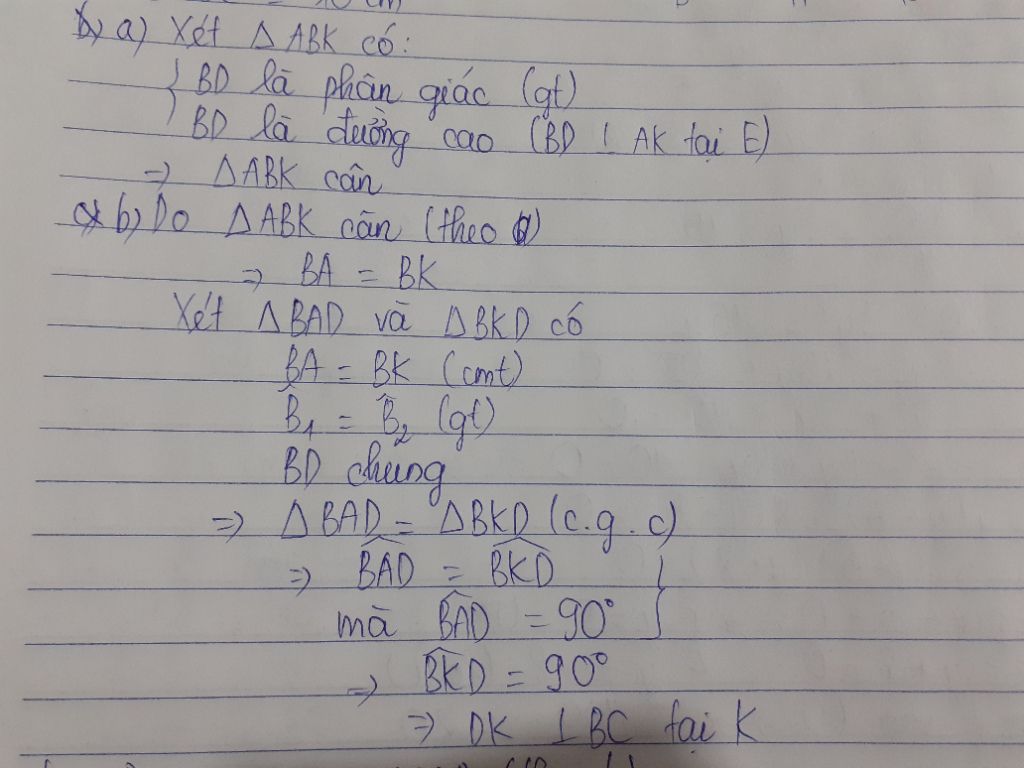 10 cm
a) Xét ΔABK có:
BD là phân giác (gt)
BD là đường cao (BD ⊥ AK tại E)
=> ΔABK cân
b) Do ΔABK cân (theo
=> BA = BK
Xét ΔBAD và ΔBKD có
BA = BK (cmt)
B̂₁ = B̂₂ (gt)
BD chung
=> ΔBAD = ΔBKD (c.g.c)
=> \widehat{BAD} = \widehat{BKD}
mà \widehat{BAD} = 90°
=> \widehat{BKD} = 90°
=> DK ⊥ BC tại K